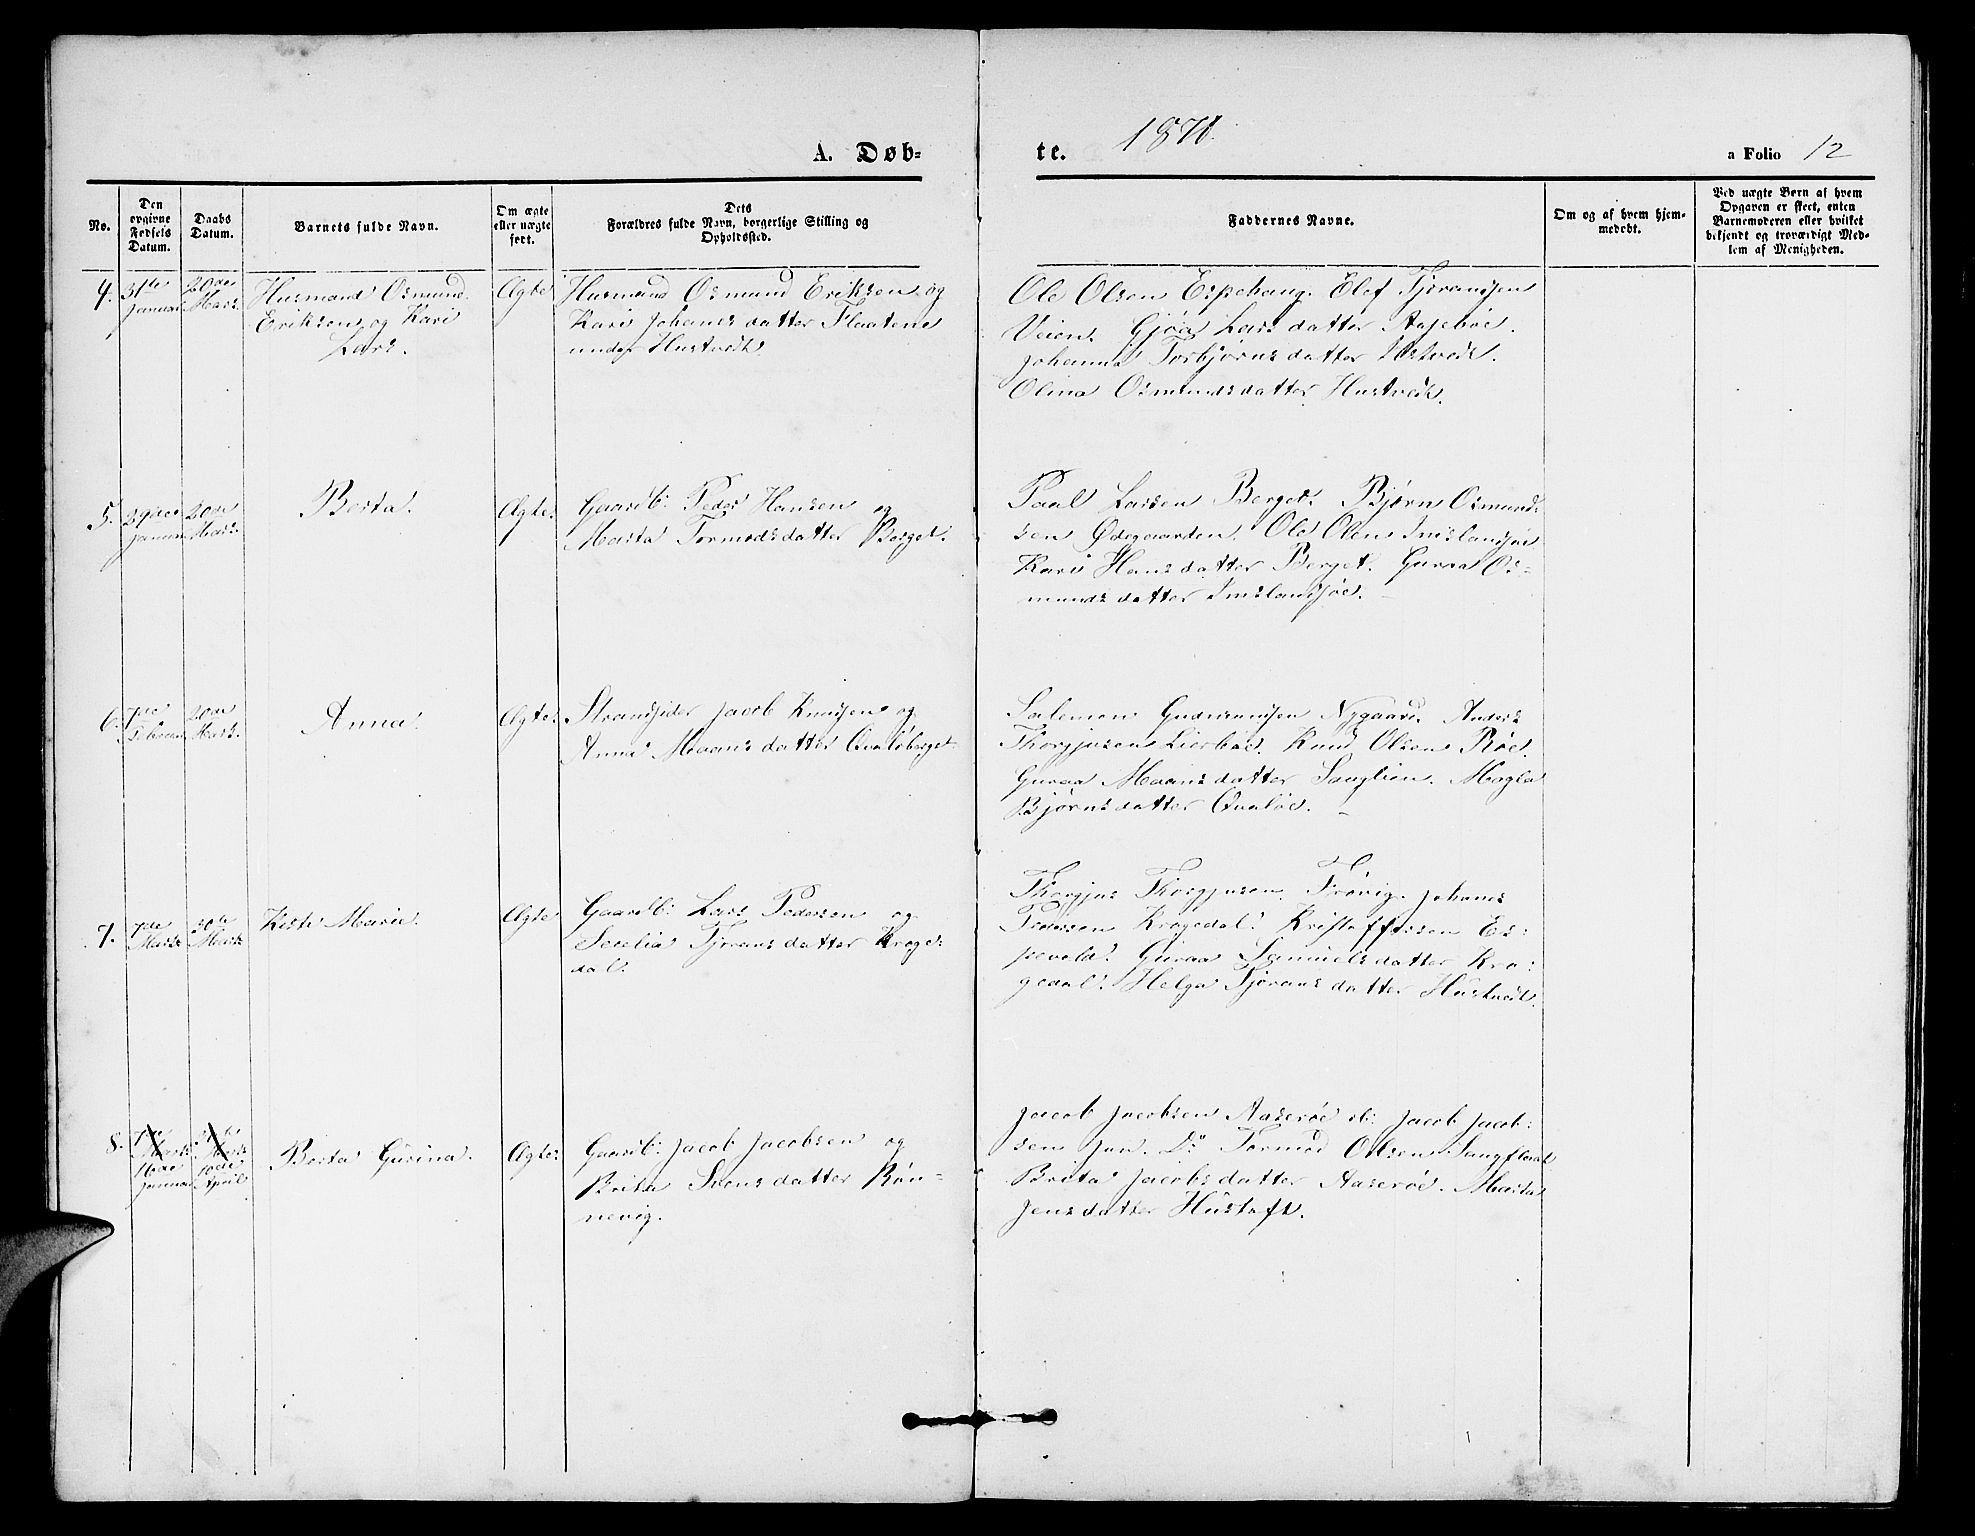 A. Døb-
te.
1870
a Folio 12
No.
Den
opgivne
Fødsels
Datum.
Daabs
Datum.
Barnets fulde Navn.
Om ægte
eller uægte
født.
Dets
Forældres fulde Navn, borgerlige Stilling og
Opholdssted.
Faddernes Navne.
Om og af hvem hjem-
medøbt.
Ved uægte Børn af hvem
Opgaven er skeet, enten
Barnemoderen eller hvilket
bekjendt og troværdigt Med-
lem af Menigheden.
4.
31te
Januar
20de
Mars.
Husmand Osmund
Eriksen og Kari
Lars.
Ægte
Husmand Osmund Eriksen og
Kari Johans datter Flaatene
under Hustvedt
Ole Olsen Espehaug. Elef Tjeransen
Veien. Gjøa Lars datter Aasebøe.
Johanna Torbjørns datter Østvedt.
Olina Osmundsdatter Hustvedt.
5.
29de
Januar
20de
Mars.
Berta.
Ægte.
Gaardb: Peder Hansen og
Marta Tormods datter Berget.
Paal Larsen Berget. Bjørn Osmund-
sen Ødegaarden. Ole Olsen Imslandsjøe
Kari Hans datter Berget. Guroa Os-
munds datter Imslandsjøe.
6.
7de
Februar
20de
Mars.
Anna.
Ægte.
Strandsider Jacob Knudsen og
Anna Maans datter Qvaløberget.
Salemon Gudmundsen Nygaard. Anders
Thorgjusen Lierbøe. Knud Olsen Røe.
Guroa Maans datter Sauglien. Magla
Bjørns datter Qvaløe.
7.
7de
Mars
30te
Mars.
Kisti Marie.
Ægte
Gaardb: Lars Pedersen og
Secelia Tjørans datter Kroge-
dal.
Thorgjus Thorgjusen Trøvig. Johans
Pedersen Krogedal. Kristoffersen Es-
pevold. Guroa Samuels datter Kro-
gedal. Helga Tjørans datter Hustvedt.
8.
7de
Mars
16de
Januar
30te
Mars
10de
April
Berta Gurina.
Ægte.
Gaardb: Jacob Jacobsen og
Brita Svens datter Røn-
nevig.
Jacob Jacobsen Aaserøe æl: Jacob Jacob-
sen Jun. Do Tormod Olsen Saugfloat
Brita Jacobs datter Aaserøe. Marta
Jens datter Hustoft.